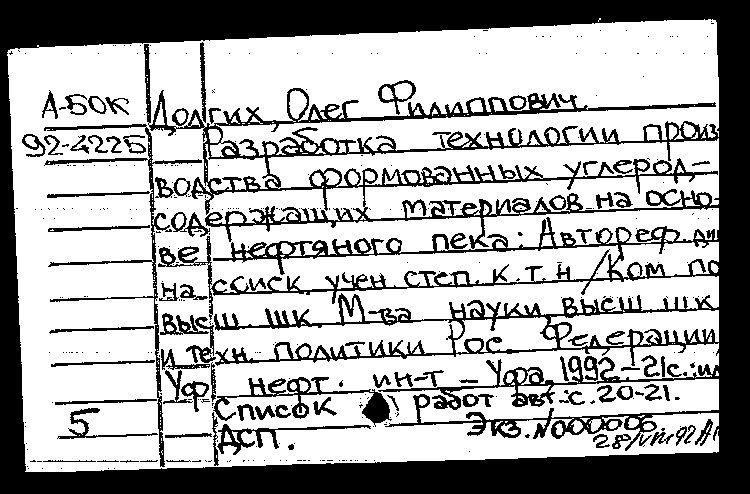 А-БОК Долгих, Олег Филиппович.
92-4225 Разработка технологии произ
водства формованных углерод,-
содержащих материалов на осно-
ве нефтяного пека: Автореф. дис
на соиск. учен степ. к.т.н /Ком по
высш. шк. М-ва науки, высш шк
и техн. политики Рос. Федерации
Уф нефт. ин-т – Уфа, 1992.-21с.:ил
Список работ авт.: с. 20-21.
5 ДСП. Экз. N000006
28/VIII 92